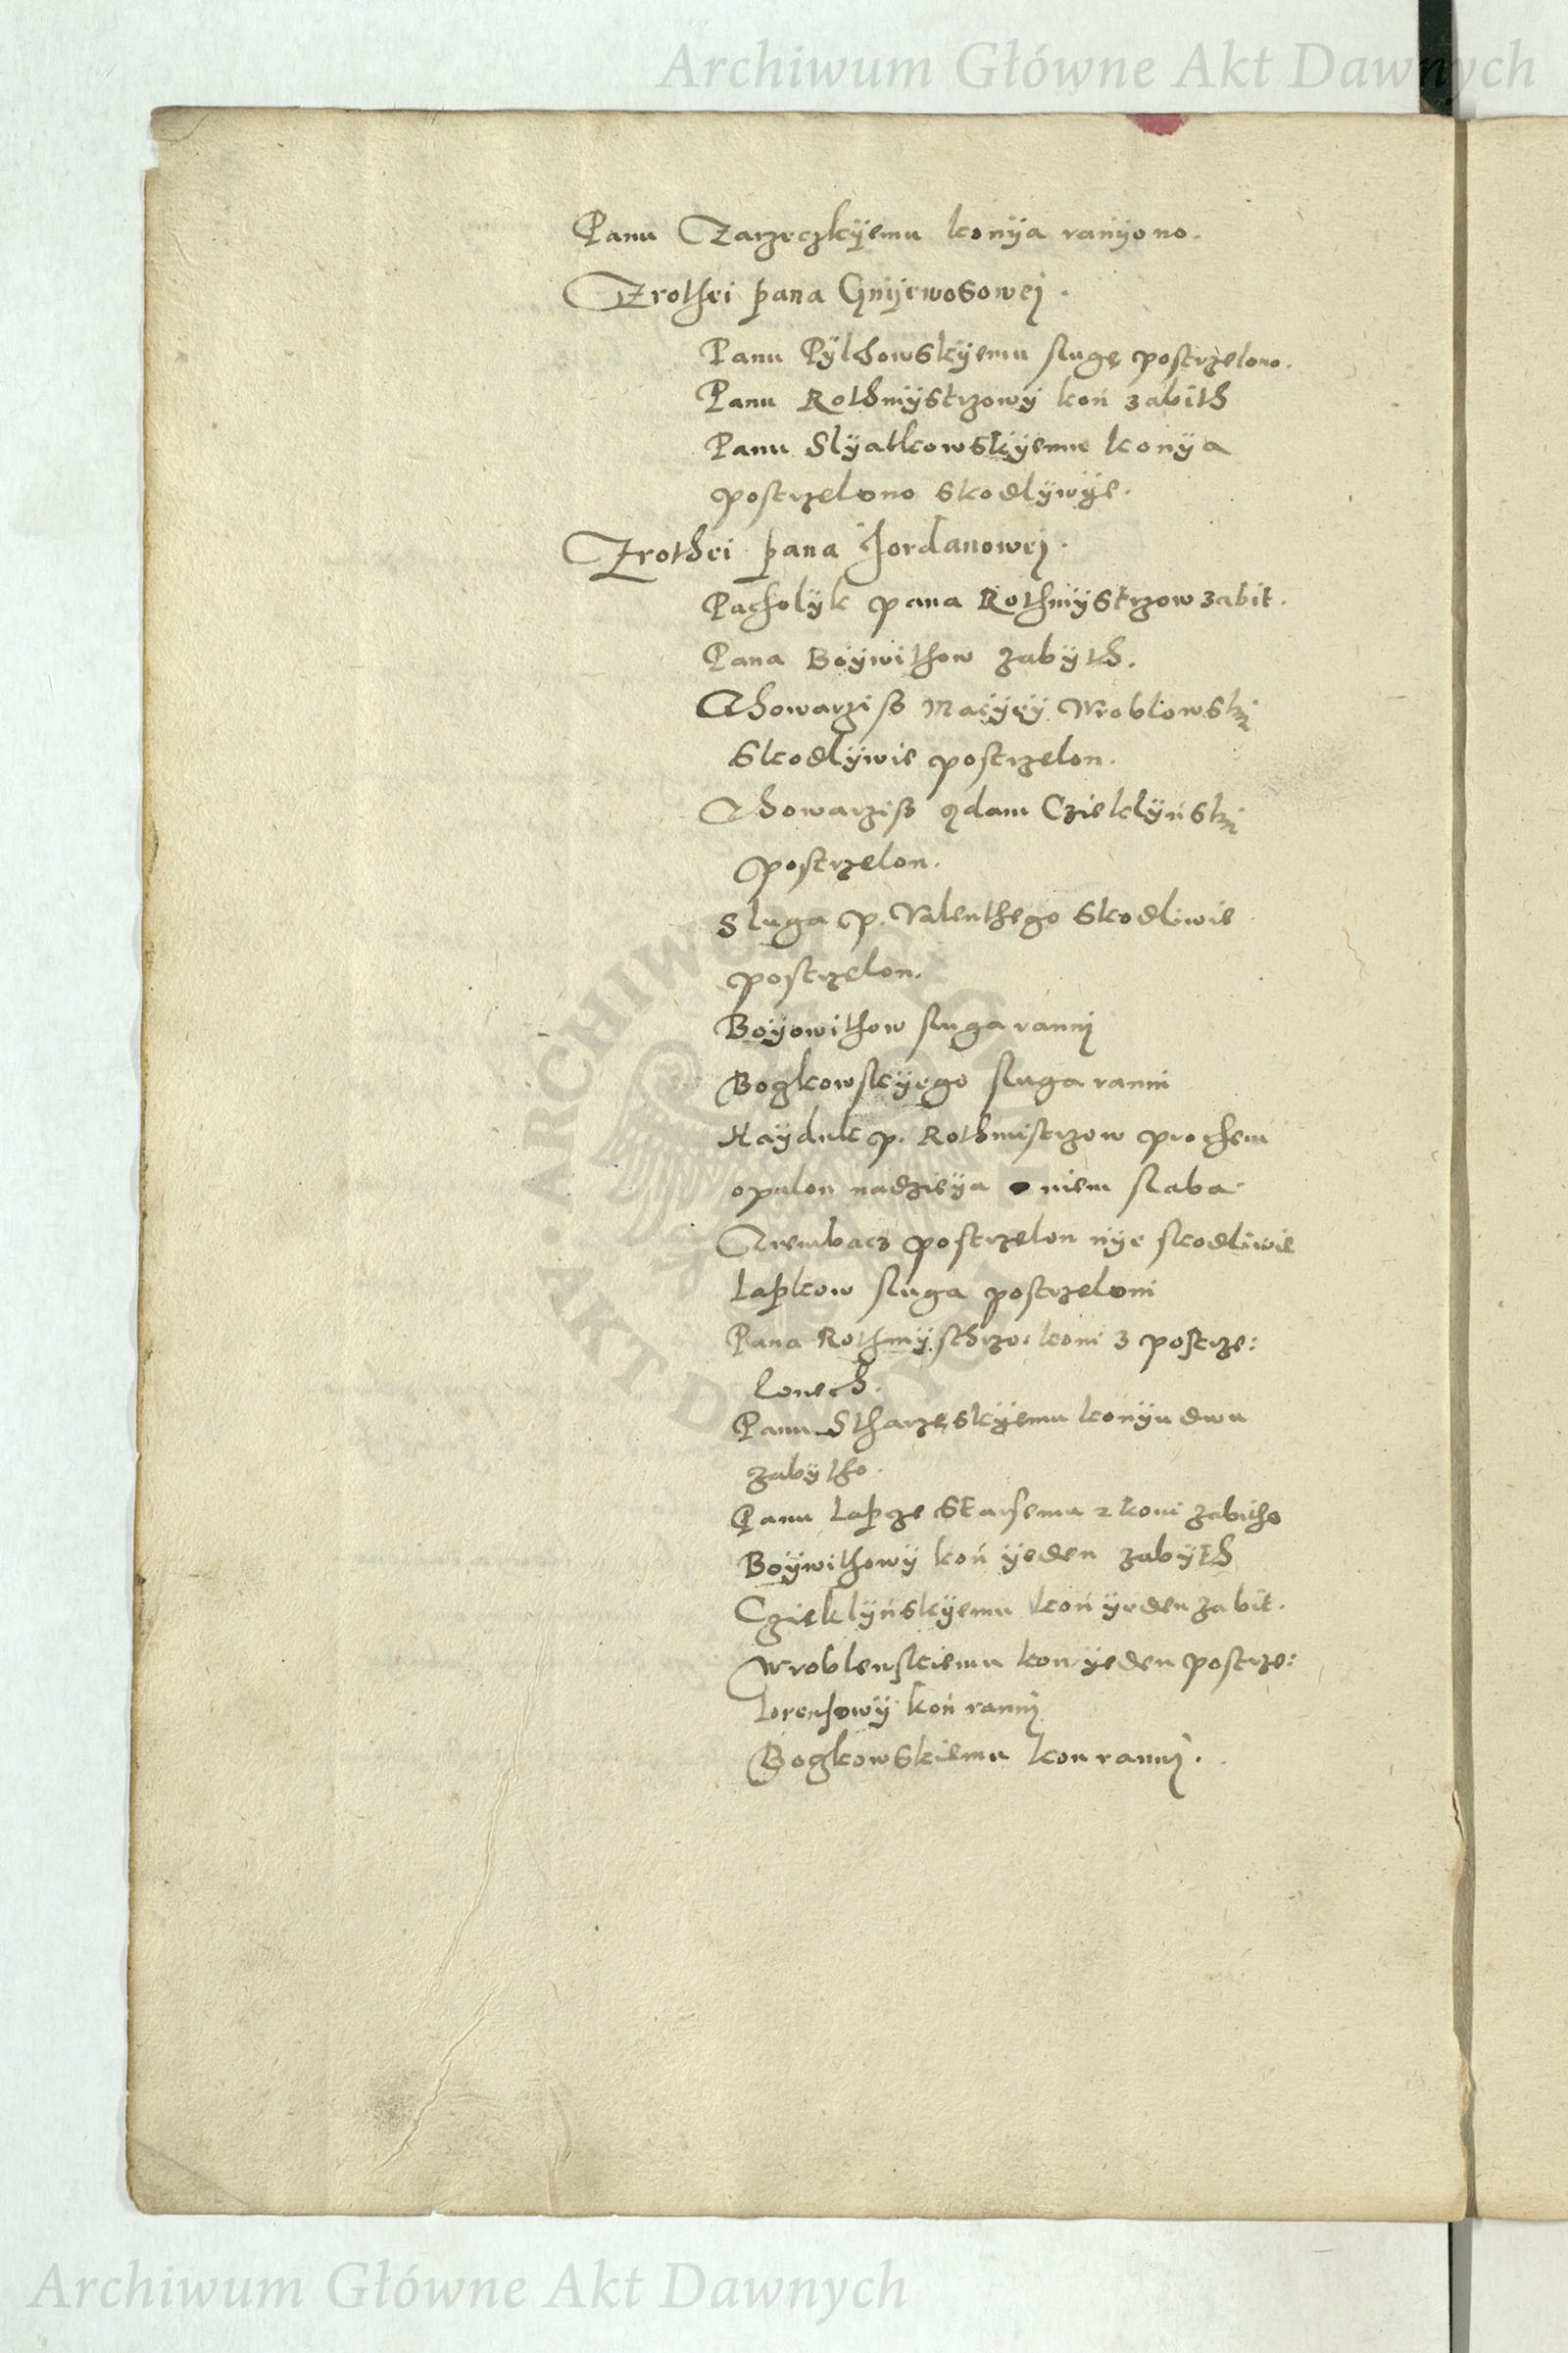 Archiwum Główne Akt Dawnych
Panu Zarzeczkÿemu konÿa ranÿono.
Zrothei pana Gnÿewosowej.
Panu Pÿlchowskÿemu slugę postrzelono.
Panu Rothmÿstrzowÿ koń zabith
Panu Slyatkowskÿemu konÿa
postrzelono skodlÿwÿe.
Zrothei pana Jordanowej.
Pacholÿk pana Rothmÿstrzow zabit.
Pana Boÿwithow zabÿth.
Thowarziß Macÿeÿ Wroblowskj
Skodlÿwie postrzelon.
Thowarziß Adam Czieklÿńskj
postrzelon.
Sluga p. Valenthego Skodliwie
postrzelon.
Boÿowithow sluga rannj
Bogkowskÿego sluga ranni
Haÿduk p. Rothmistrzow prochem
opalon nadzieÿa o niem slaba.
postrzelon nÿe skodliwie
Lapkow sluga postrzeloni
Pana Rothmÿschrzo: koni 3 postrze:
lonech.
Panu Stharzeskÿemu konÿu dwu
zabÿtho.
Panu Lapze Starsemu 2 koni zabitho
Boÿwithowÿ koń ÿeden zabÿth
Czieklÿńskÿemu koń ÿeden zabit.
Wroblenskiemu kon ÿeden postrze:
Lorensowÿ koń rannj
Bogkowskiemu kon rannj.
ARCHIWUM GŁÓWNE
AKT DAWNYCH
Archiwum Główne Akt Dawnych